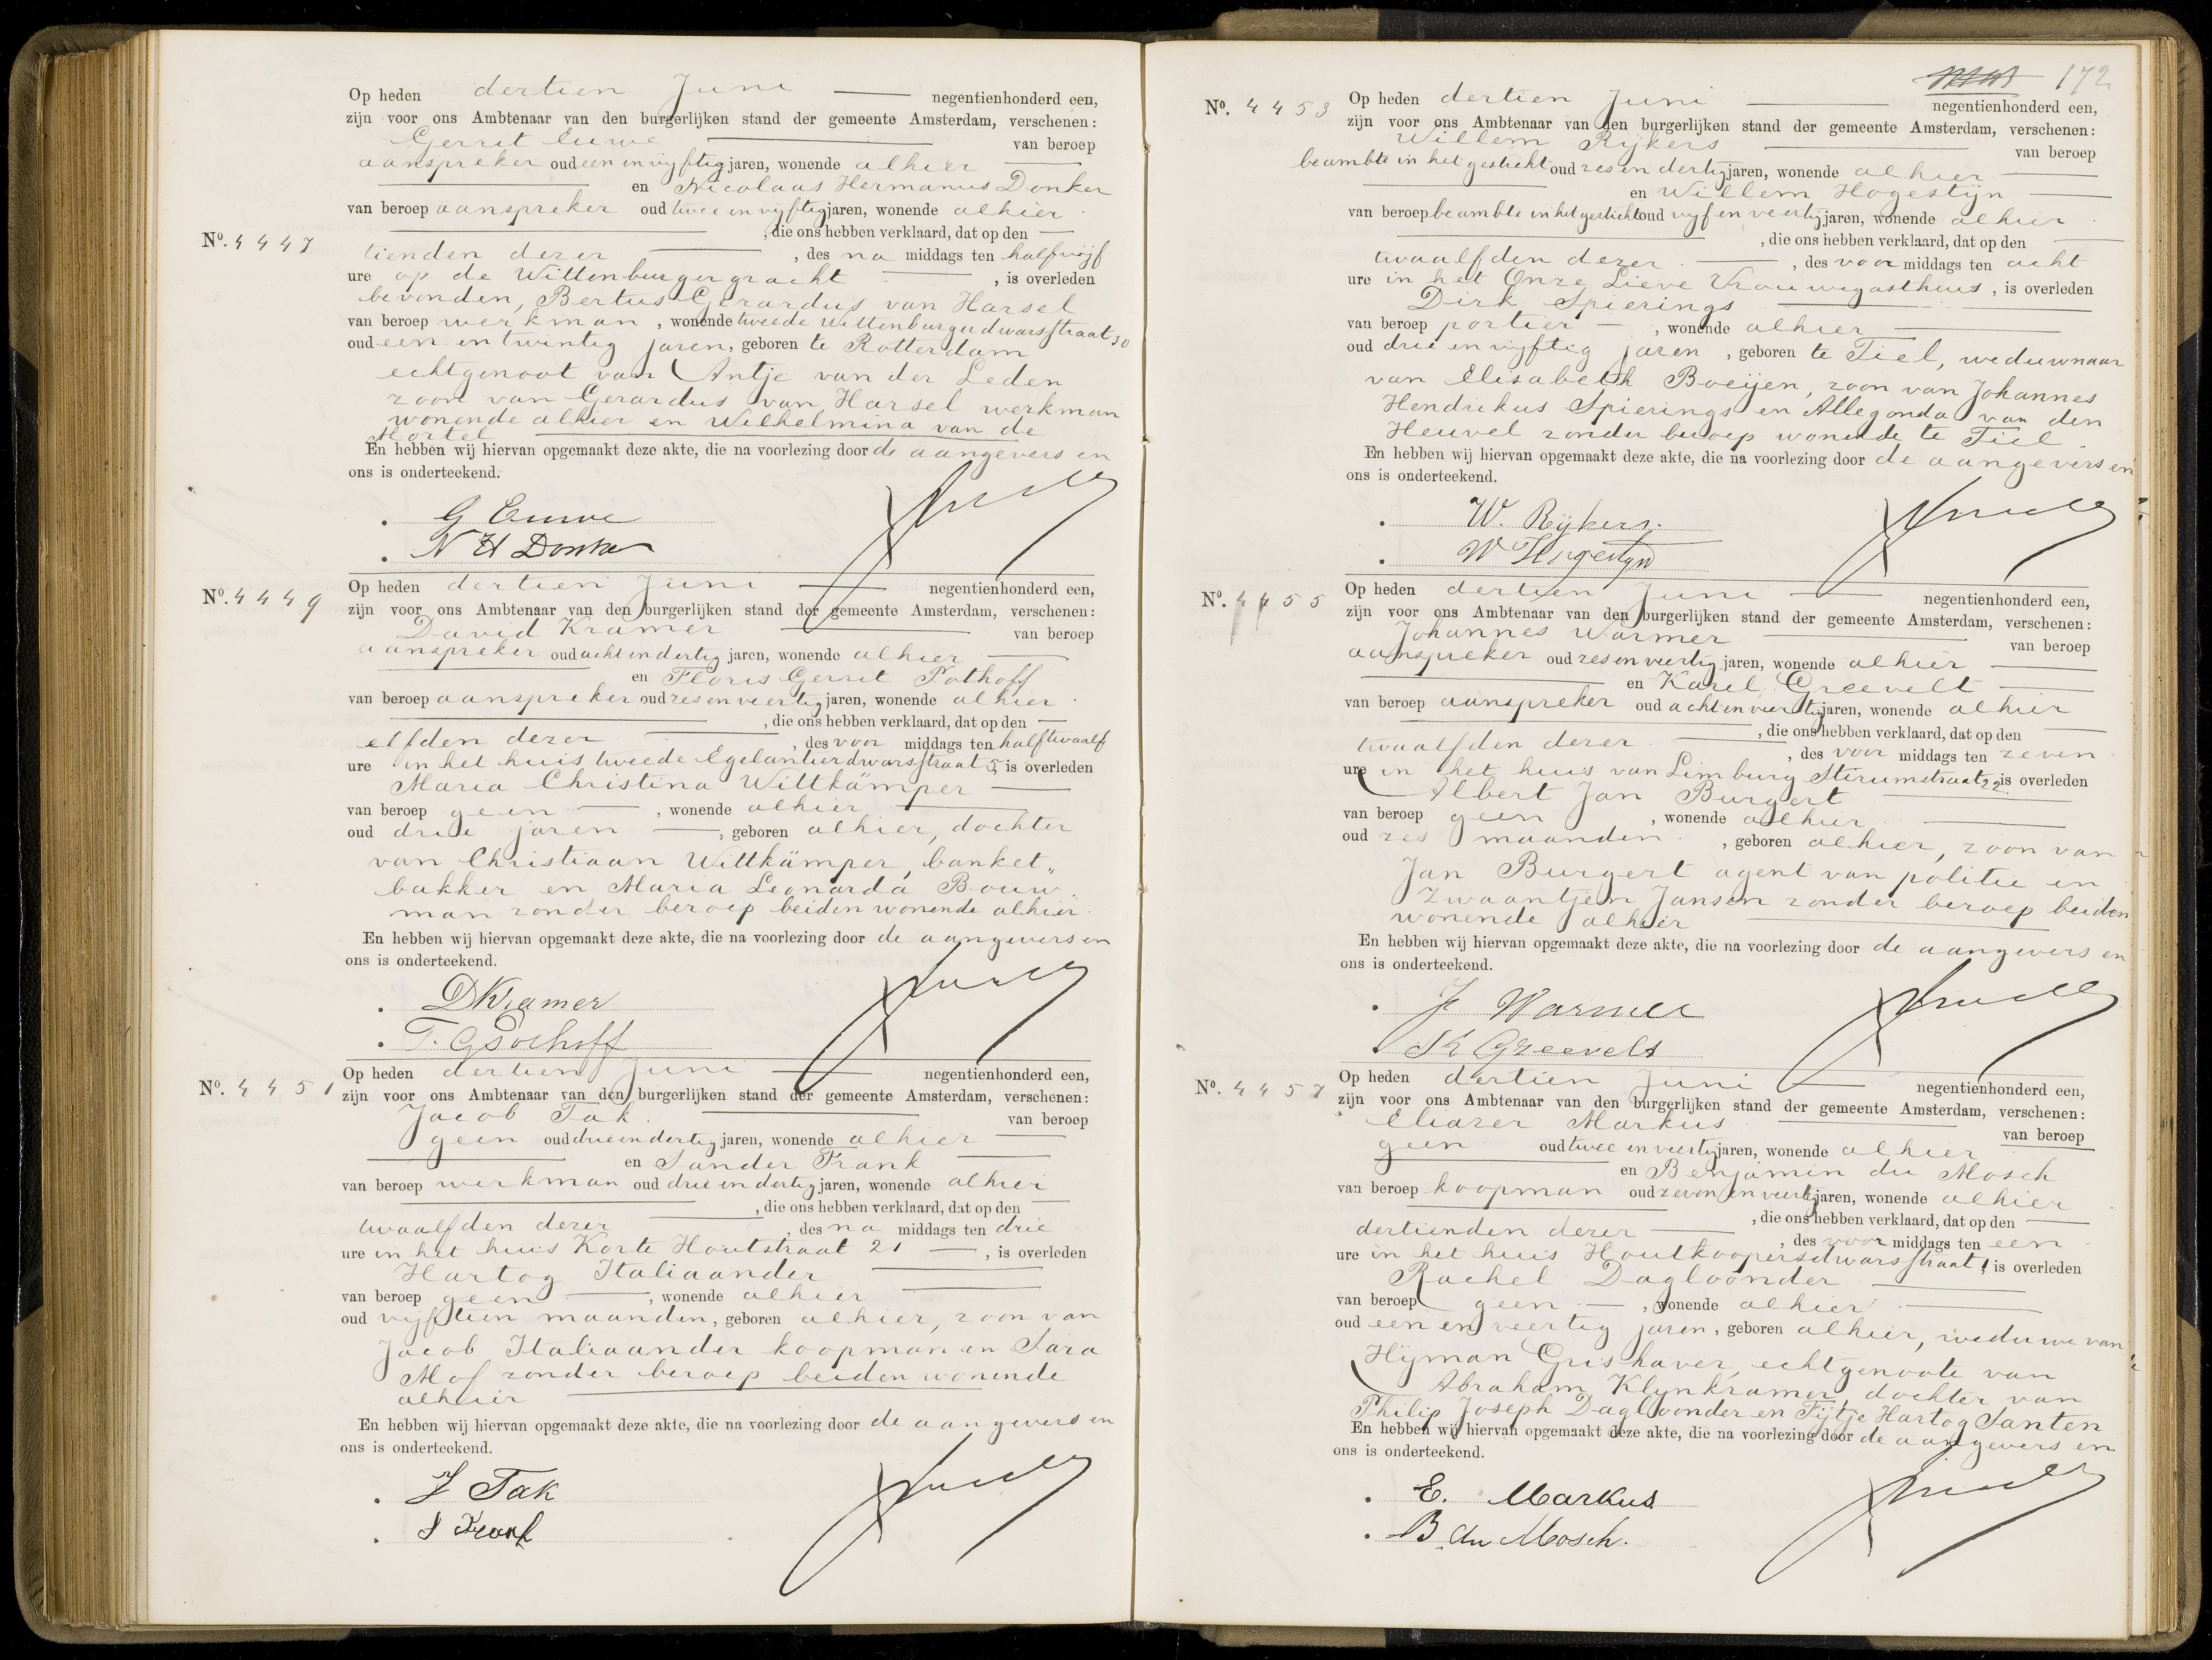 Op heden dertien Juni negentienhonderd een,
zijn voor ons Ambtenaar van den burgerlijken stand der gemeente Amsterdam, verschenen:
Gerrit Euwe van beroep
aanspreker oud een en vijftig jaren, wonende alhier
en Nicolaas Hermanus Donker
van beroep aanspreker oud twee en vijftig jaren, wonende alhier
, die ons hebben verklaard, dat op den
No. 4447
tienden dezer , des na middags ten half vijf
ure op de Wittenburgergracht , is overleden
bevonden, Bertus Gerardus van Harsel
van beroep werkman , wonende tweede Wittenburgerdwarsstraat 30
oud een en twintig jaren, geboren te Rotterdam
echtgenoot van Antje van der Leden
zoon van Gerardus van Harsel werkman
wonende alhier en Wilhelmina van de
Mortel
En hebben wij hiervan opgemaakt deze akte, die na voorlezing door de aangevers en
ons is onderteekend.
G Euwe
N H Donker
No. 4449
Op heden dertien Juni negentienhonderd een,
zijn voor ons Ambtenaar van den burgerlijken stand der gemeente Amsterdam, verschenen:
David Kramer van beroep
aanspreker oud acht en dertig jaren, wonende alhier
en Floris Gerrit Pothoff
van beroep aanspreker oud zes en veertig jaren, wonende alhier
, die ons hebben verklaard, dat op den
elfden dezer , des voor middags ten half twaalf
ure in het huis tweede Egelantierdwarsstraat 5, is overleden
Maria Christina Wittkämper
van beroep geen , wonende alhier
oud drie jaren , geboren alhier, dochter
van Christiaan Wittkämper, banket„
bakker en Maria Leonarda Bouw„
man zonder beroep beiden wonende alhier.
En hebben wij hiervan opgemaakt deze akte, die na voorlezing door de aangevers en
ons is onderteekend.
DKramer
F. G Pothoff
No. 4451
Op heden dertien Juni negentienhonderd een,
zijn voor ons Ambtenaar van den burgerlijken stand der gemeente Amsterdam, verschenen:
Jacob Tak van beroep
geen oud drie en dertig jaren, wonende alhier
en Sander Frank
van beroep werkman oud drie en dertig jaren, wonende alhier
, die ons hebben verklaard, dat op den
twaalfden dezer , des na middags ten drie
ure in het huis Korte Houtstraat 21 , is overleden
Hartog Italiaander
van beroep geen , wonende alhier
oud vijftien maanden, geboren alhier, zoon van
Jacob Italiaander koopman en Sara
Mof zonder beroep beiden wonende
alhier
En hebben wij hiervan opgemaakt deze akte, die na voorlezing door de aangevers en
ons is onderteekend.
J Tak
S Frank
172
No. 4453
Op heden dertien Juni negentienhonderd een,
zijn voor ons Ambtenaar van den burgerlijken stand der gemeente Amsterdam, verschenen:
Willem Rijkers van beroep
beambte in het gesticht oud zes en dertig jaren, wonende alhier
en Willem Hogestijn
van beroep beambte in het gesticht oud vijf en veertig jaren, wonende alhier
, die ons hebben verklaard, dat op den
twaalfden dezer , des voor middags ten acht
ure in het Onze Lieve Vrouwegasthuis , is overleden
Dirk Spierings
van beroep portier , wonende alhier
oud drie en vijftig jaren , geboren te Tiel, weduwnaar
van Elisabeth Boeijen, zoon van Johannes
Hendrikus Spierings en Allegonda van den
Heuvel zonder beroep wonende te Tiel.
En hebben wij hiervan opgemaakt deze akte, die na voorlezing door de aangevers en
ons is onderteekend.
W. Rijkers.
W Hogestijn
No. 4455
Op heden dertien Juni negentienhonderd een,
zijn voor ons Ambtenaar van den burgerlijken stand der gemeente Amsterdam, verschenen:
Johannes Warmer van beroep
aanspreker oud zes en veertig jaren, wonende alhier
en Karel Greevelt
van beroep aanspreker oud acht en veertig jaren, wonende alhier
, die ons hebben verklaard, dat op den
twaalfden dezer , des voor middags ten zeven
ure in het huis van Limburg Stirumstraat 22 is overleden
Albert Jan Burgert
van beroep geen , wonende alhier
oud zes maanden , geboren alhier, zoon van
Jan Burgert agent van politie en
Zwaantjen Jansen zonder beroep beiden
wonende alhier
En hebben wij hiervan opgemaakt deze akte, die na voorlezing door de aangevers en
ons is onderteekend.
J Warmer
K Greevelt
No. 4457
Op heden dertien Juni negentienhonderd een,
zijn voor ons Ambtenaar van den burgerlijken stand der gemeente Amsterdam, verschenen:
Eliazer Markus van beroep
geen oud twee en veertig jaren, wonende alhier
en Benjamin du Mosch
van beroep koopman oud zeven en veertig jaren, wonende alhier
, die ons hebben verklaard, dat op den
dertienden dezer , des voor middags ten een
ure in het huis Houtkoopersdwarsstraat 1, is overleden
Rachel Dagloonder
van beroep geen , wonende alhier
oud een en veertig jaren, geboren alhier, weduwe van
Hijman Grishaver, echtgenoote van
Abraham Klynkramer, dochter van
Philip Joseph Dagloonder en Fijtje Hartog Santen
En hebben wij hiervan opgemaakt deze akte, die na voorlezing door de aangevers en
ons is onderteekend.
E. Markus
B. du Mosch.